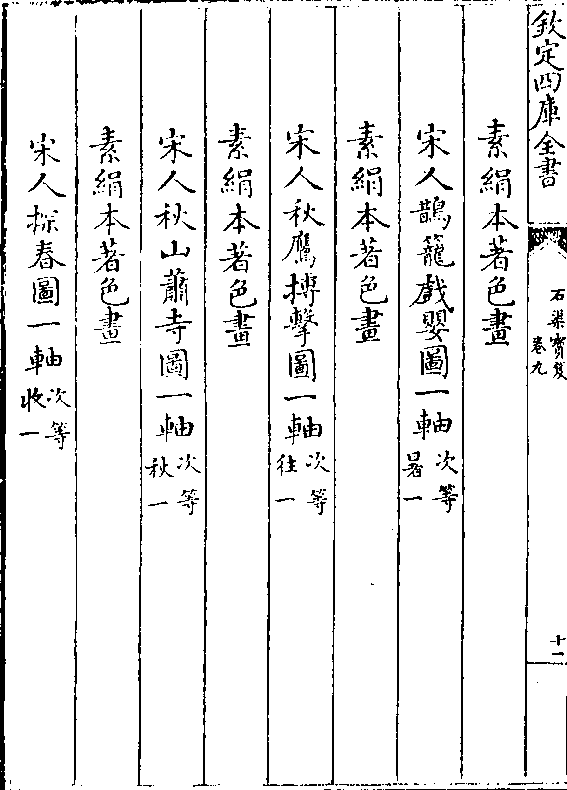 欽定四庫全書
石渠寶笈
卷九
十一
素絹本著色畫
宋人鵲籠戲嬰圖一軸次等暑一
素絹本著色畫
宋人秋鷹搏擊圖一軸次等往一
素絹本著色畫
宋人秋山蕭寺圖一軸次等秋一
素絹本著色畫
宋人探春圖一軸次等收一